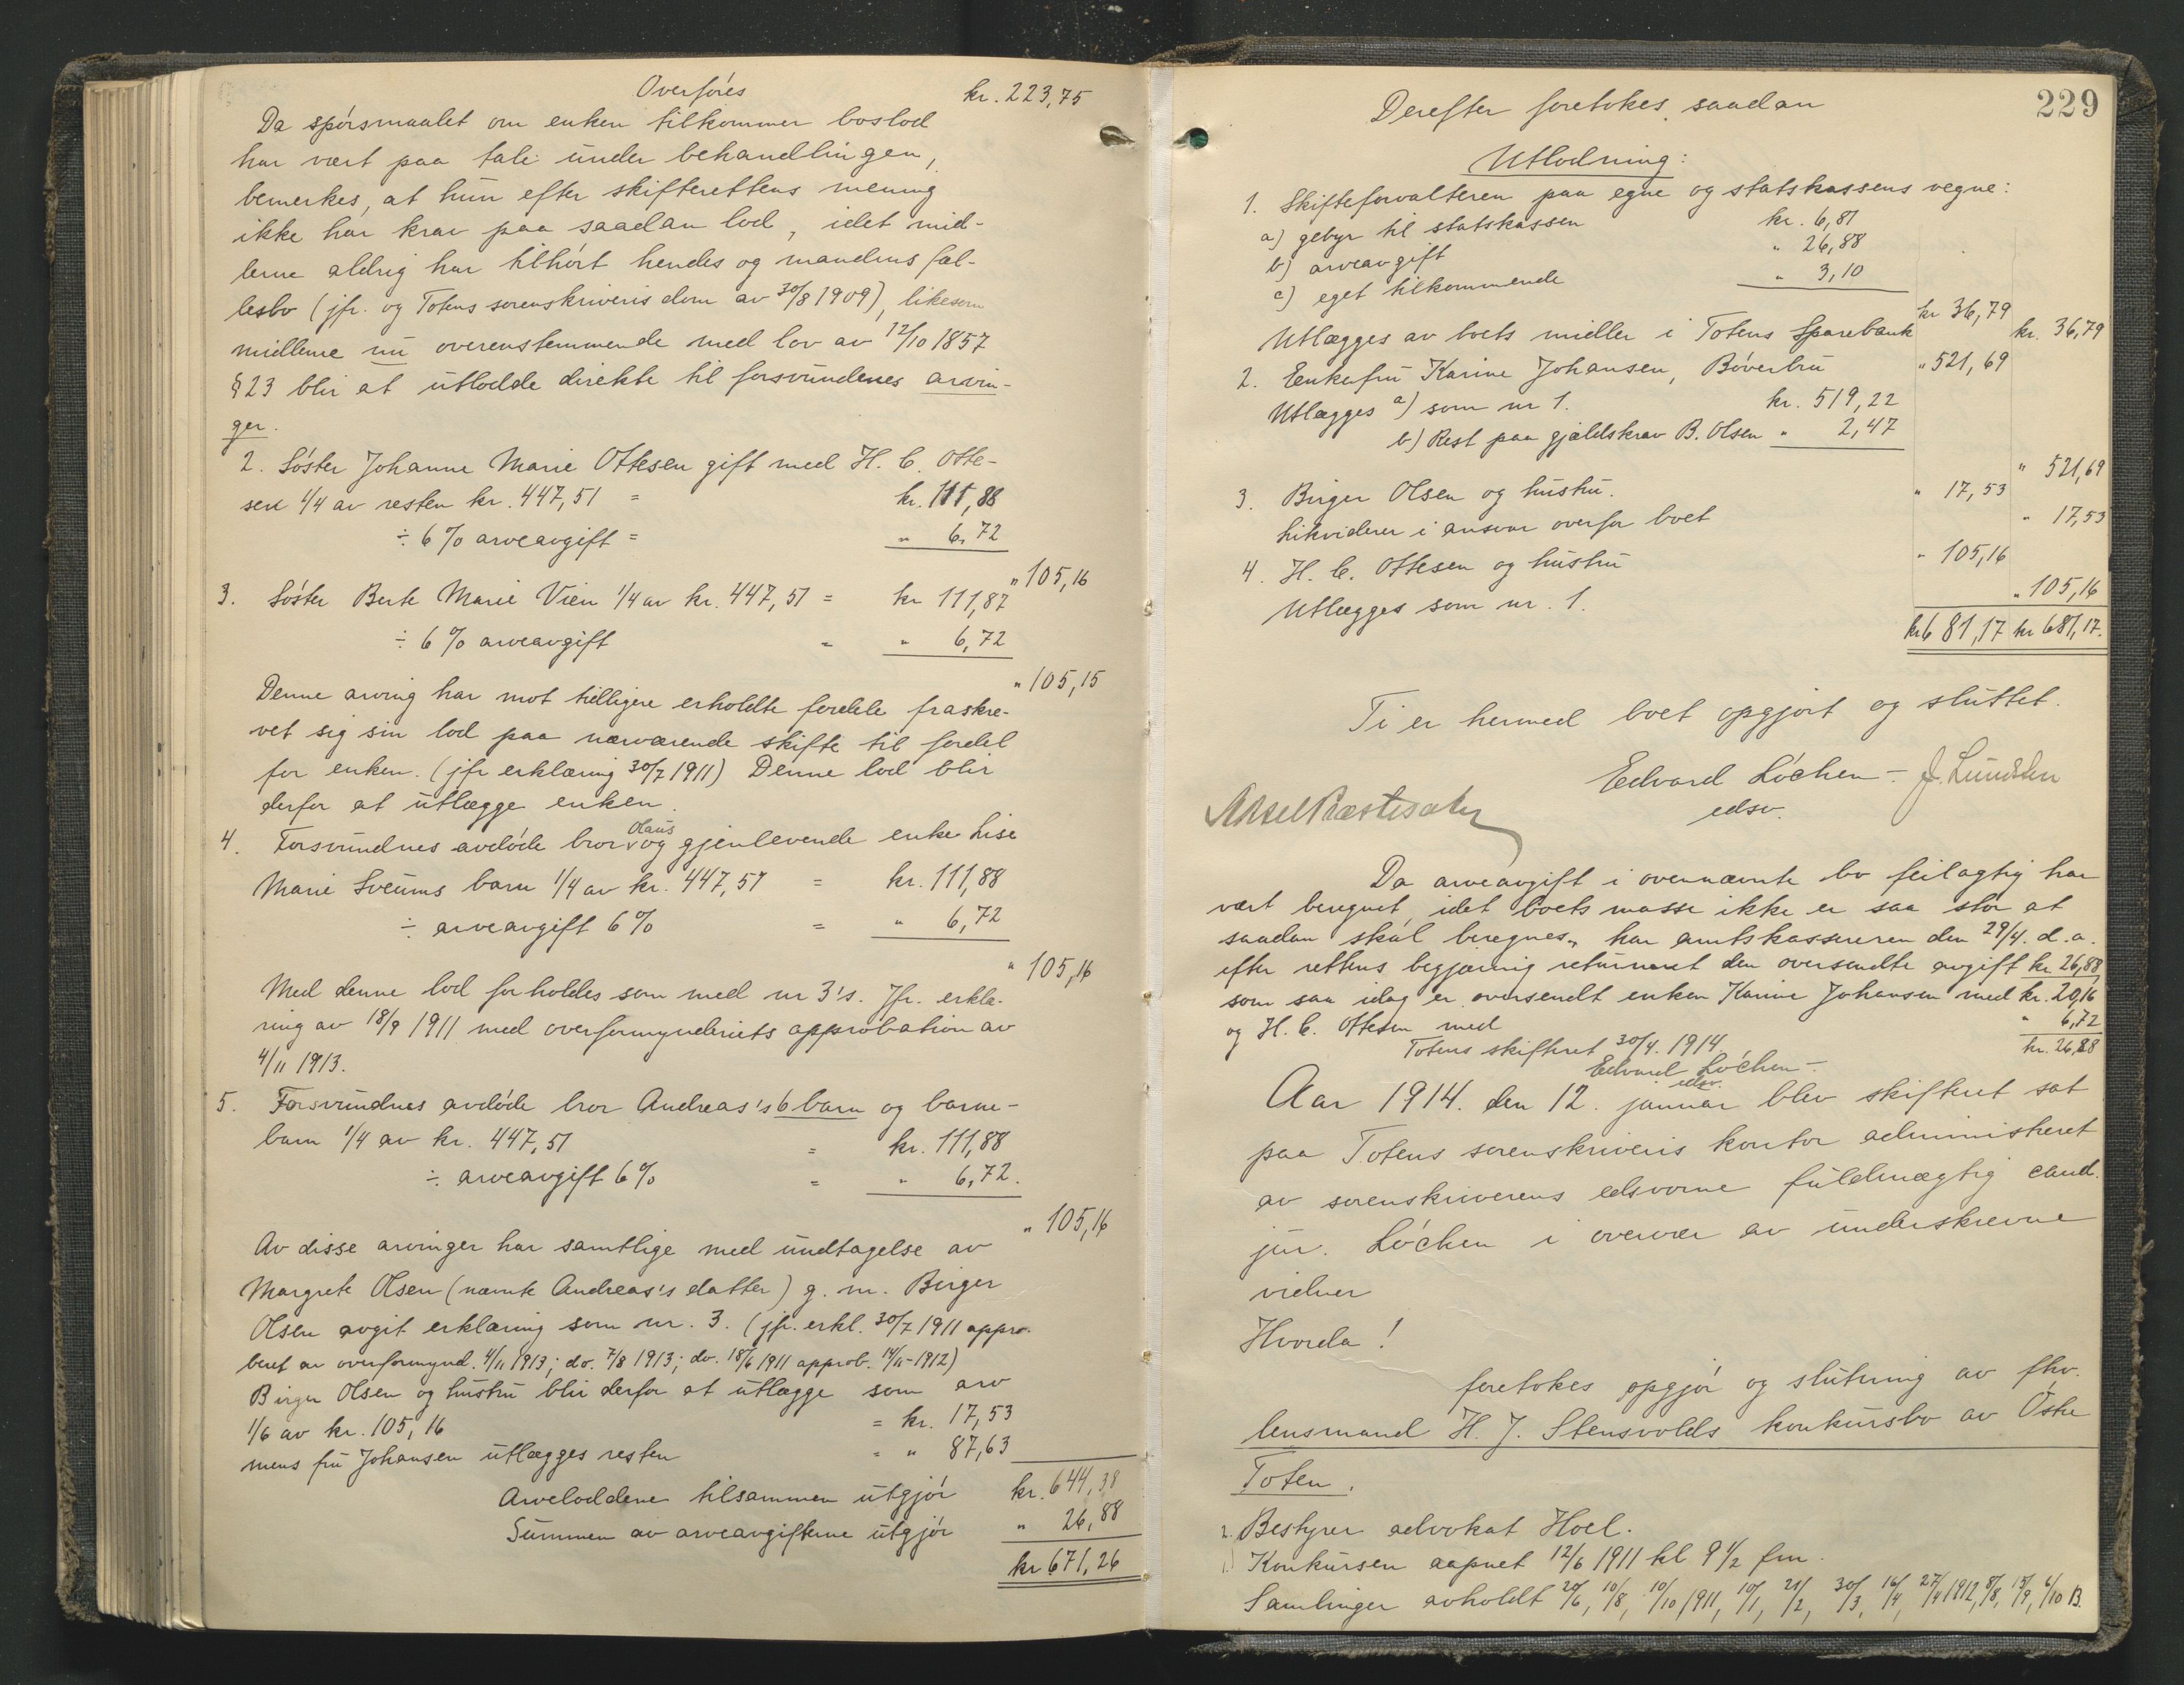 Overføres kr. 223,75
Da spørsmaalet om enken tilkommer boslod
har vært paa tale under behandlingen,
bemerkes, at hun efter skifterettens mening
ikke har krav paa saadan lod, idet mid-
lerne aldrig har tilhørt hendes og mandens fæl-
lesbo (jfr. og Totens sorenskriveris dom av 30/8 1909), likesom
midlerne nu overenstemmende med lov av 12/10 1857
§ 23 blir at utlodde direkte til forsvundenes arvin-
ger.
2. Søster Johanne Marie Ottesen gift med H. C. Otte-
sen 1/4 av resten kr. 447,51 = kr. 111,88
÷ 6 % arveavgift = " 6,72
" 105,16
3. Søster Berte Marie Vien 1/4 av kr. 447,51 = kr 111,87
÷ 6 % arveavgift = " 6,72
" 105,15
Denne arving har mot tidligere erholdte fordele fraskre-
vet sig sin lod paa nærværende skifte til fordel
for enken. (jfr erklæring 30/7 1911) Denne lod blir
derfor at utlægge enken.
4. Forsvundnes avdøde bror Olaus og gjenlevende enke Lise
Marie Sveums barn 1/4 av kr. 447,51 = kr. 111,88
÷ arveavgift 6 % = " 6,72
" 105,16
Med denne lod forholdes som med nr 3's. Jfr. erklæ-
ring av 18/9 1911 med overformynderiets approbation av
4/11 1913.
5. Forsvundnes avdøde bror Andreas's 6 barn og barne-
barn 1/4 av kr. 447,51 = kr. 111,88
÷ arveavgift 6 % = " 6,72.
" 105,16
Av disse arvinger har samtlige med undtagelse av
Margrete Olsen (nævnte Andreas's datter) g. m. Birger
Olsen avgit erklæring som nr. 3. (jfr. erkl. 30/7 1911 appro-
beret av overformynd. 4/11 1913; do. 7/8 1913; do. 18/6 1911 approb. 14/11-1912)
Birger Olsen og hustru blir derfor at utlægge som arv
1/6 av kr. 105,16 = kr. 17,53
mens fru Johansen utlægges resten = " 87,63
Arveloddene tilsammen utgjør kr. 644,38
Summen av arveavgifterne utgjør " 26,88
kr 671,26
229
Derefter foretokes saadan
Utlodning:
1. Skifteforvalteren paa egne og statskassens vegne:
a) gebyr til statskassen kr. 6,81
b) arveavgift " 26,88
c) eget tilkommende " 3,10
kr 36,79
Utlægges av boets midler i Totens Sparebank kr. 36,79
2. Enkefru Karine Johansen, Bøverbru " 521,69
Utlægges a) som nr 1. kr. 519,22
b) Rest paa gjældskrav B. Olsen " 2,47
" 521,69
3. Birger Olsen og hustru. " 17,53
Likviderer i ansvar overfor boet " 17,53
4. H. C. Ottesen og hustru " 105,16
Utlægges som nr. 1. " 105,16
kr 681,17 kr 681,17.
Ti er hermed boet opgjort og sluttet.
Edvard Løchen - J. Lundsten
edsv.
Aksel Præstesæter
Da arveavgift i overnævnte bo feilagtig har
vært beregnet, idet boets masse ikke er saa stor at
saadan skal beregnes, har amtskassereren den 29/4. d. a.
efter rettens begjæring returneret den oversendte avgift kr. 26,88
som saa idag er oversendt enken Karine Johansen med kr. 20,16
og H. C. Ottesen med " 6,72
kr. 26,88
Totens skifteret 30/4. 1914
Edvard Løchen -
edsv.
Aar 1914. den 12. januar blev skifteret sat
paa Totens sorenskriveris kontor administreret
av sorenskriverens edsvorne fuldmægtig cand.
jur. Løchen i overvær av underskrevne
vidner
Hvorda!
foretokes opgjør og slutning av fhv.
lensmand H. J. Stensvolds konkursbo av Østre
Toten.
2. Bestyrer advokat Hoel.
1) Konkursen aapnet 12/6 1911 kl 9 1/2 fm.
Samlinger avholdt 20/6, 10/8, 10/10 1911, 10/1, 21/2, 30/3, 16/4, 27/4 1912, 8/8, 15/9, 6/10 13.